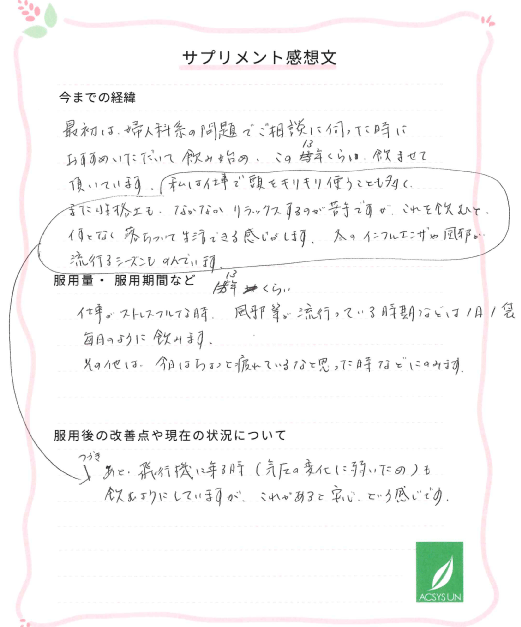 サプリメント感想文
今までの経緯
最初は、婦人科系の問題でご相談に伺った時に
おすすめいただいて飲み始め、この13年くらい、飲ませて
頂いています。私は仕事で頭をキリキリ使うことも多く、
また性格上も、なかなかリラックスするのが苦手ですが、これを飲むと、
何となく落ちついて生活できる感じがします。冬のインフルエンザや風邪が
流行るシーズンものんでいます。
服用量・服用期間など
13年くらい
仕事がストレスフルな時、風邪等が流行っている時期などは1日1袋
毎日のように飲みます。
その他は、今日はちょっと疲れているなと思った時などにのみます。
服用後の改善点や現在の状況について
つづき
あと、飛行機に乗る時(気圧の変化に弱いため)も
飲むようにしていますが、これがあると安心、という感じです。
ACSYS UN